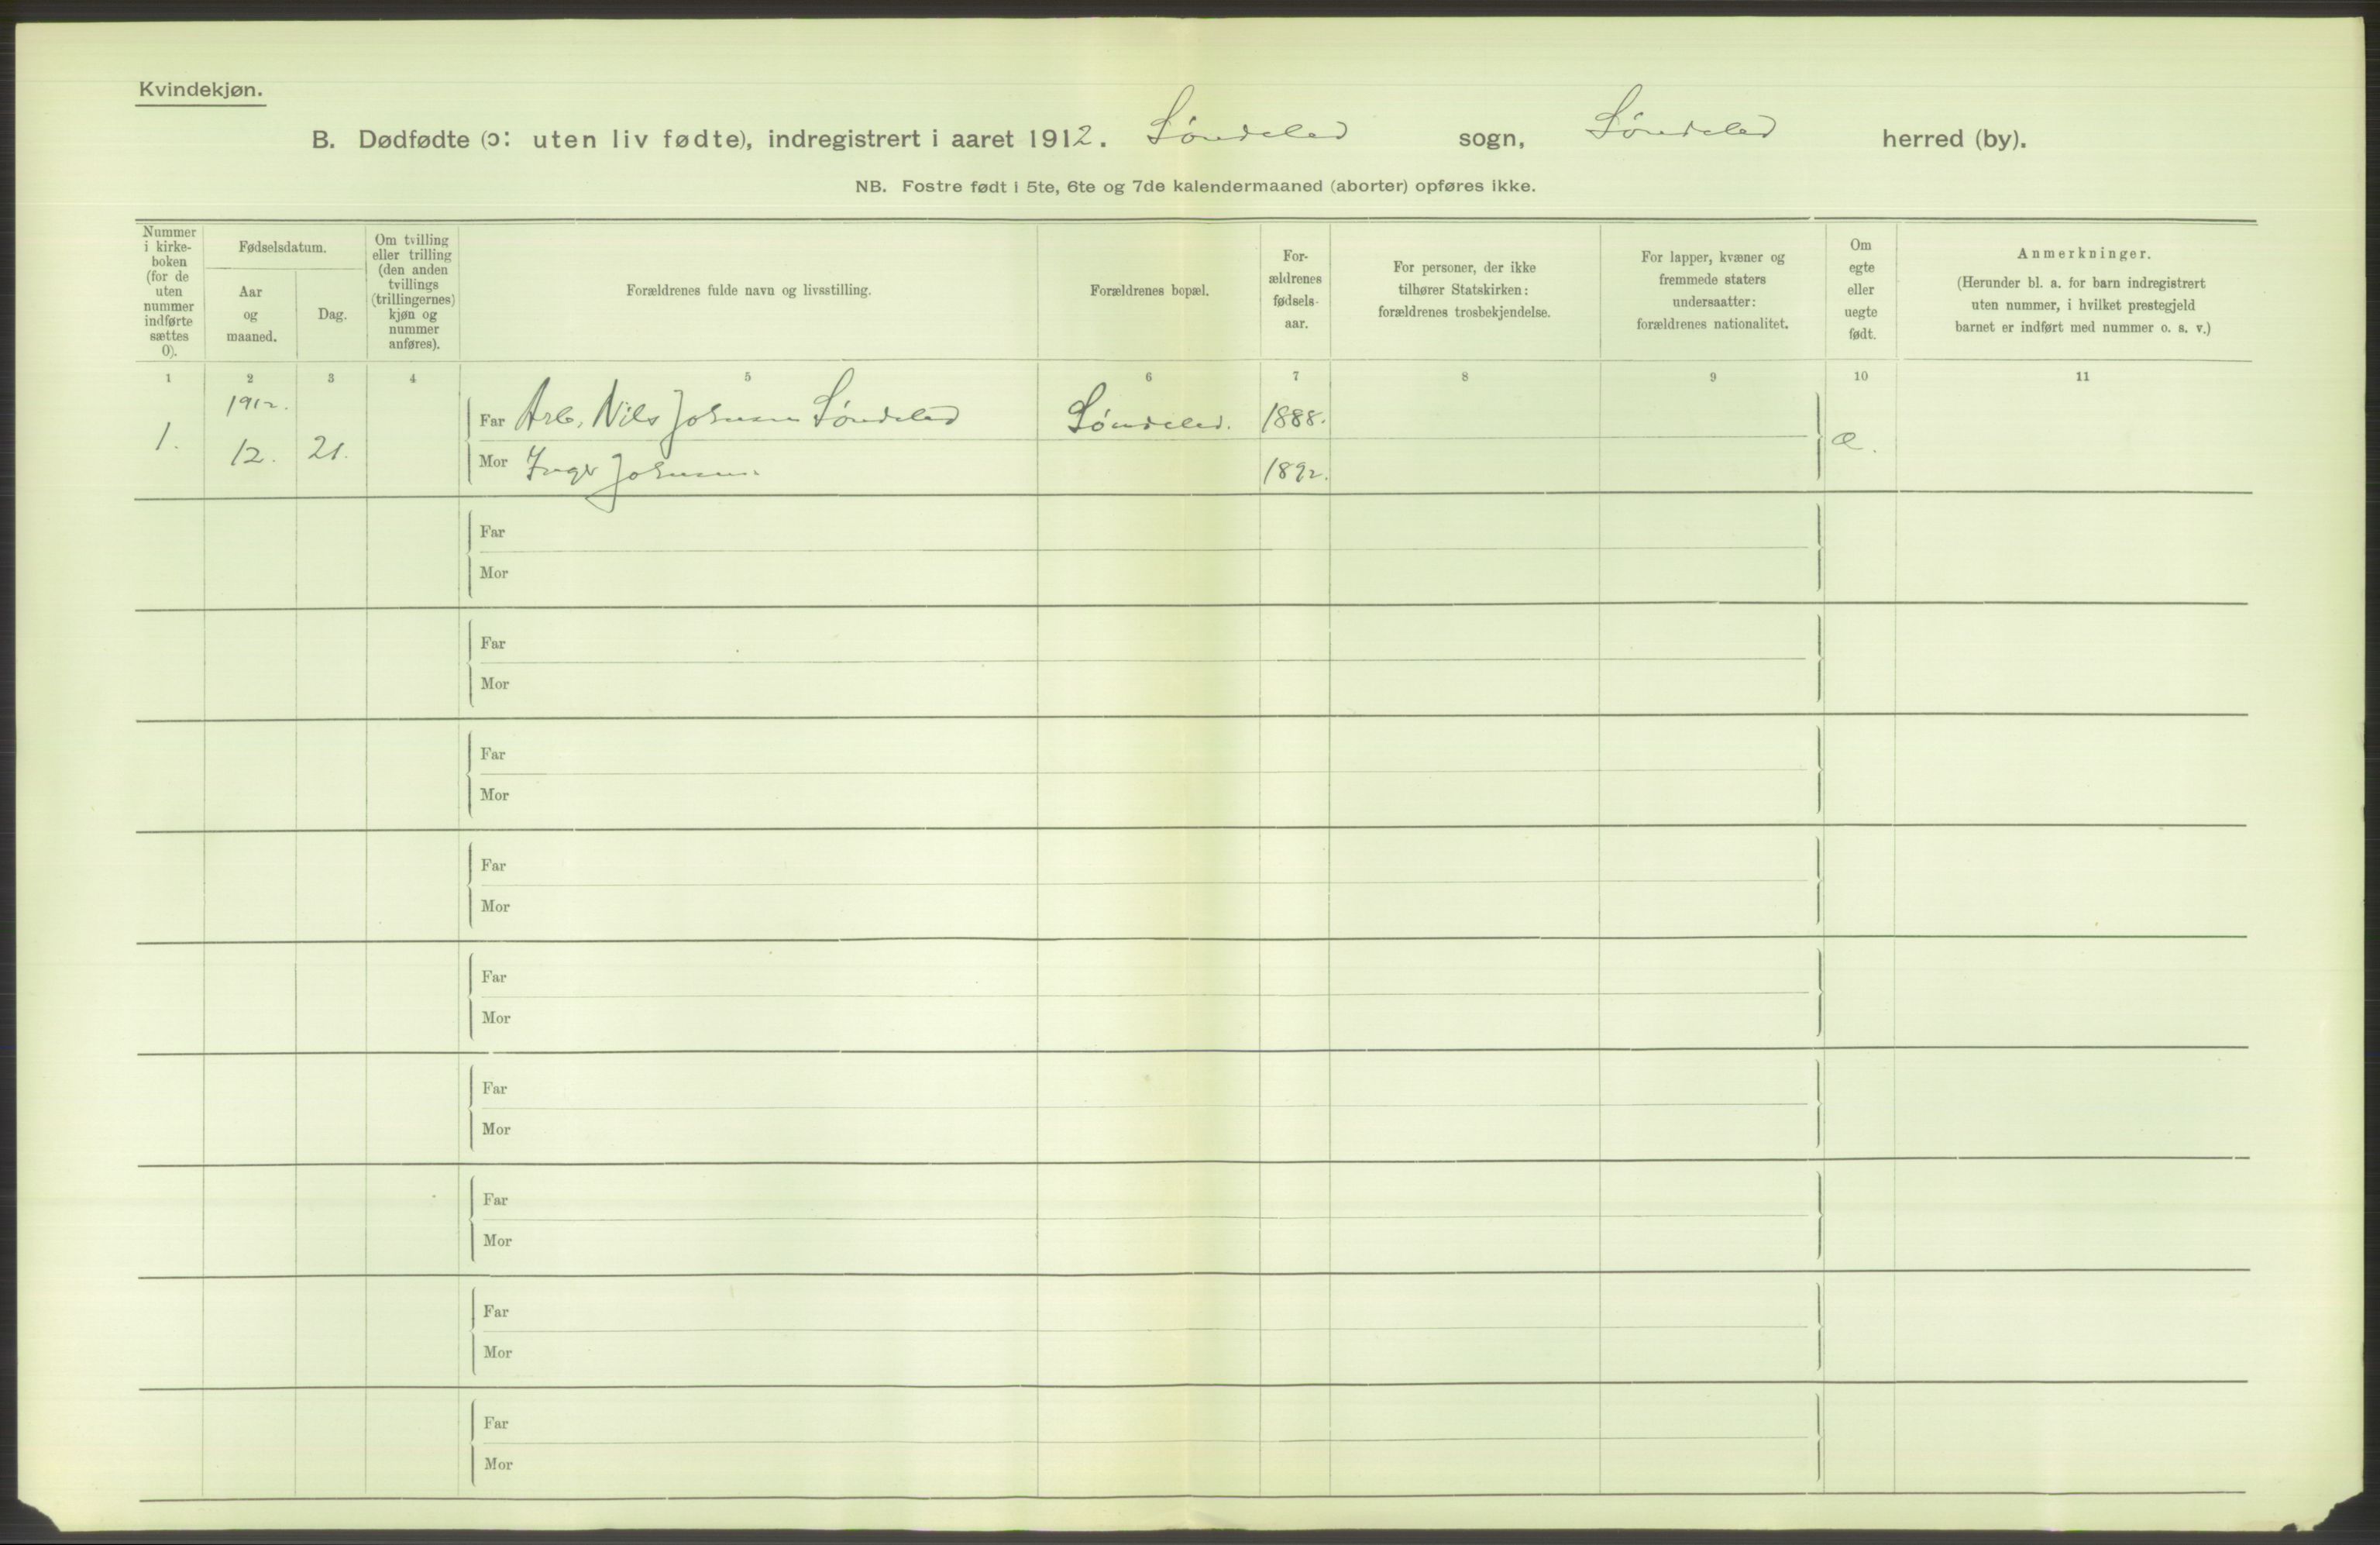 Kvindekjøn.
B. Dødfødte (ɔ: uten liv fødte), indregistrert i aaret 1912. Søndeled sogn, Søndeled herred (by).
NB. Fostre født i 5te, 6te og 7de kalendermaaned (aborter) opføres ikke.
Nummer
i kirke-
boken
(for de
uten
nummer
indførte
sættes
0).
Fødselsdatum.
Aar
og
maaned.
Dag.
Om tvilling
eller trilling
(den anden
tvillings
(trillingernes)
kjøn og
nummer
anføres).
Forældrenes fulde navn og livsstilling.
Forældrenes bopæl.
For-
ældrenes
fødsels-
aar.
For personer, der ikke
tilhører Statskirken:
forældrenes trosbekjendelse.
For lapper, kvæner og
fremmede staters
undersaatter:
forældrenes nationalitet.
Om
egte
eller
uegte
født.
Anmerkninger.
(Herunder bl. a. for barn indregistrert
uten nummer, i hvilket prestegjeld
barnet er indført med nummer o. s. v.)
1 2 3 4 5 6 7 8 9 10 11
1912.
1. 12. 21.
Far Arb. Nils Johnsen Søndeled Søndeled. 1888.
Mor Inger Johnsen. 1892.
æ.
Far
Mor
Far
Mor
Far
Mor
Far
Mor
Far
Mor
Far
Mor
Far
Mor
Far
Mor
Far
Mor